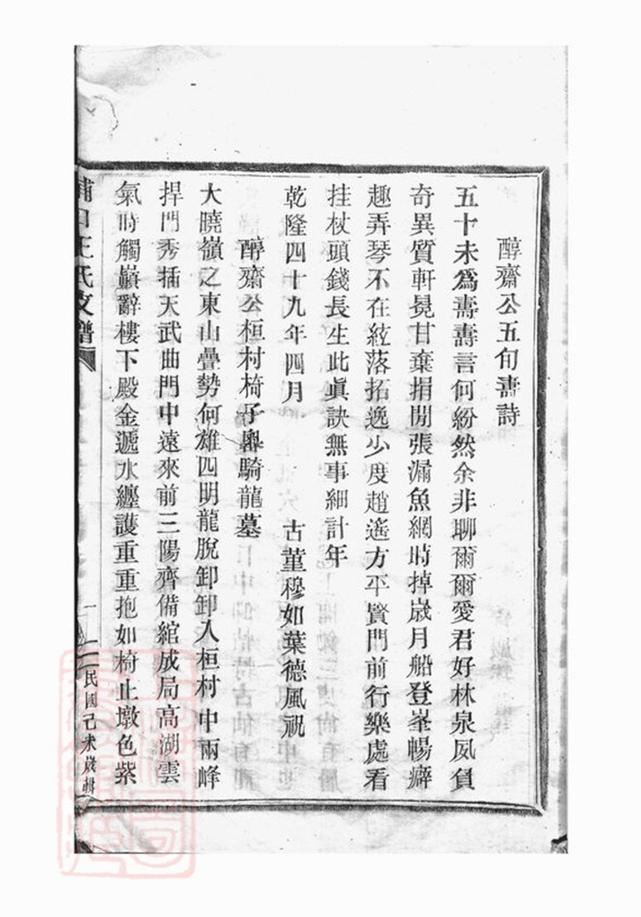 醇齋公五旬壽詩
五十未為壽壽言何紛然余非聊爾爾愛君好林泉夙負
奇異質軒冕甘棄捐閒張漏魚網時掉歲月船登峯暢癖
趣弄琴不在絃落拓逸少度趙遙方平賢門前行樂處看
挂杖頭錢長生此眞訣無事細計年
乾隆四十九年四月
古堇穆如葉德風祝
醇齋公桓村椅子騎龍墓
大曉嶺之東山疊勢何雄四明龍脫卸卸入桓村中兩峰
捍門秀插天武曲門中遠來前三陽齊備綰成局高湖雲
氣時觸巔辭樓下殿金遞水纏護重重抱如椅止墩色紫
浦口王氏支譜
一
民國己未歲輯